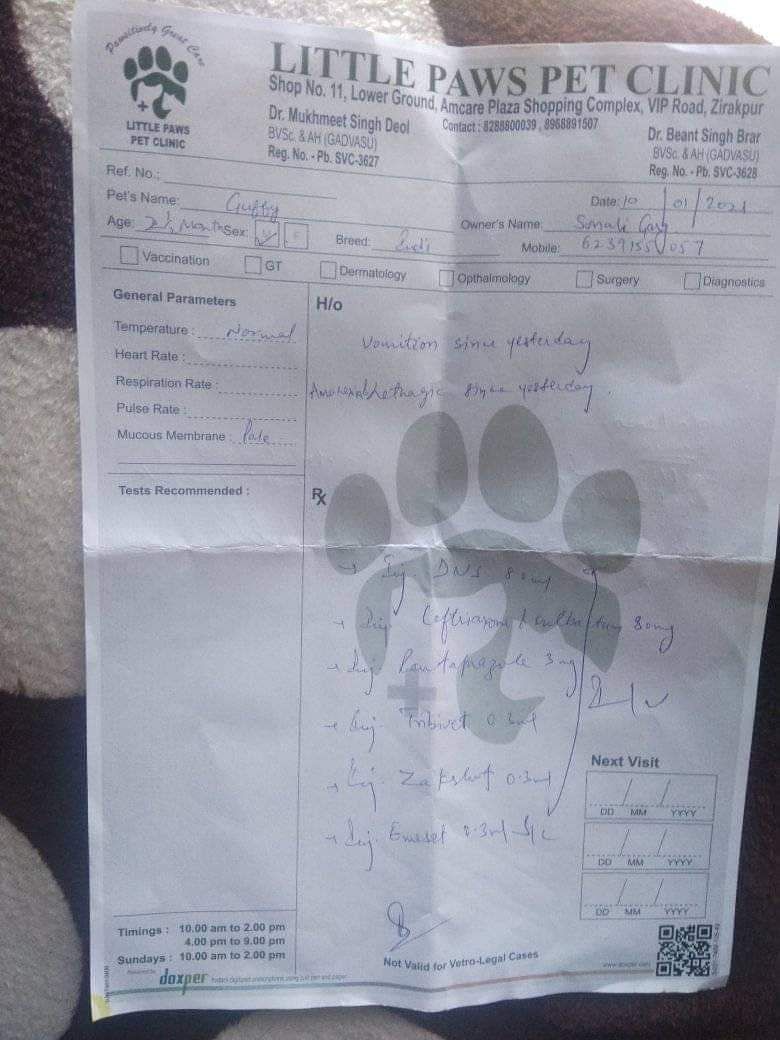 Pawsitively Great Care
LITTLE PAWS
PET CLINIC
LITTLE PAWS PET CLINIC
Shop No. 11, Lower Ground, Amcare Plaza Shopping Complex, VIP Road, Zirakpur
Contact : 8288800039 , 8968891507
Dr. Mukhmeet Singh Deol
BVSc. & AH (GADVASU)
Reg. No. - Pb. SVC-3627
Dr. Beant Singh Brar
BVSc. & AH (GADVASU)
Reg. No. - Pb. SVC-3628
Ref. No.:
Pet's Name: Guffy Date: 10/01/2021
Age: 2½ Month Sex: M F Breed: Owner's Name: Sonali Garg
Mobile: 6239155057
Vaccination GT Dermatology Opthalmology Surgery Diagnostics
General Parameters
Temperature : Normal
Heart Rate :
Respiration Rate :
Pulse Rate :
Mucous Membrane : Pale
Tests Recommended :
H/o
Vomition since yesterday
since yesterday.
Rx
→ Inj. DNS 80ml
→ Inj. 80mg
→ Inj. Pantaprazole 3mg
→ Inj. Tribivet 0.3ml
→ Inj. 0.3ml
→ Inj. Emeset 0.3ml S/c
I/v
Next Visit
DD MM YYYY
DD MM YYYY
DD MM YYYY
Timings : 10.00 am to 2.00 pm
4.00 pm to 9.00 pm
Sundays : 10.00 am to 2.00 pm
Not Valid for Vetro-Legal Cases
Powered by doxper Instant digitized prescriptions using just pen and paper
www.doxper.com